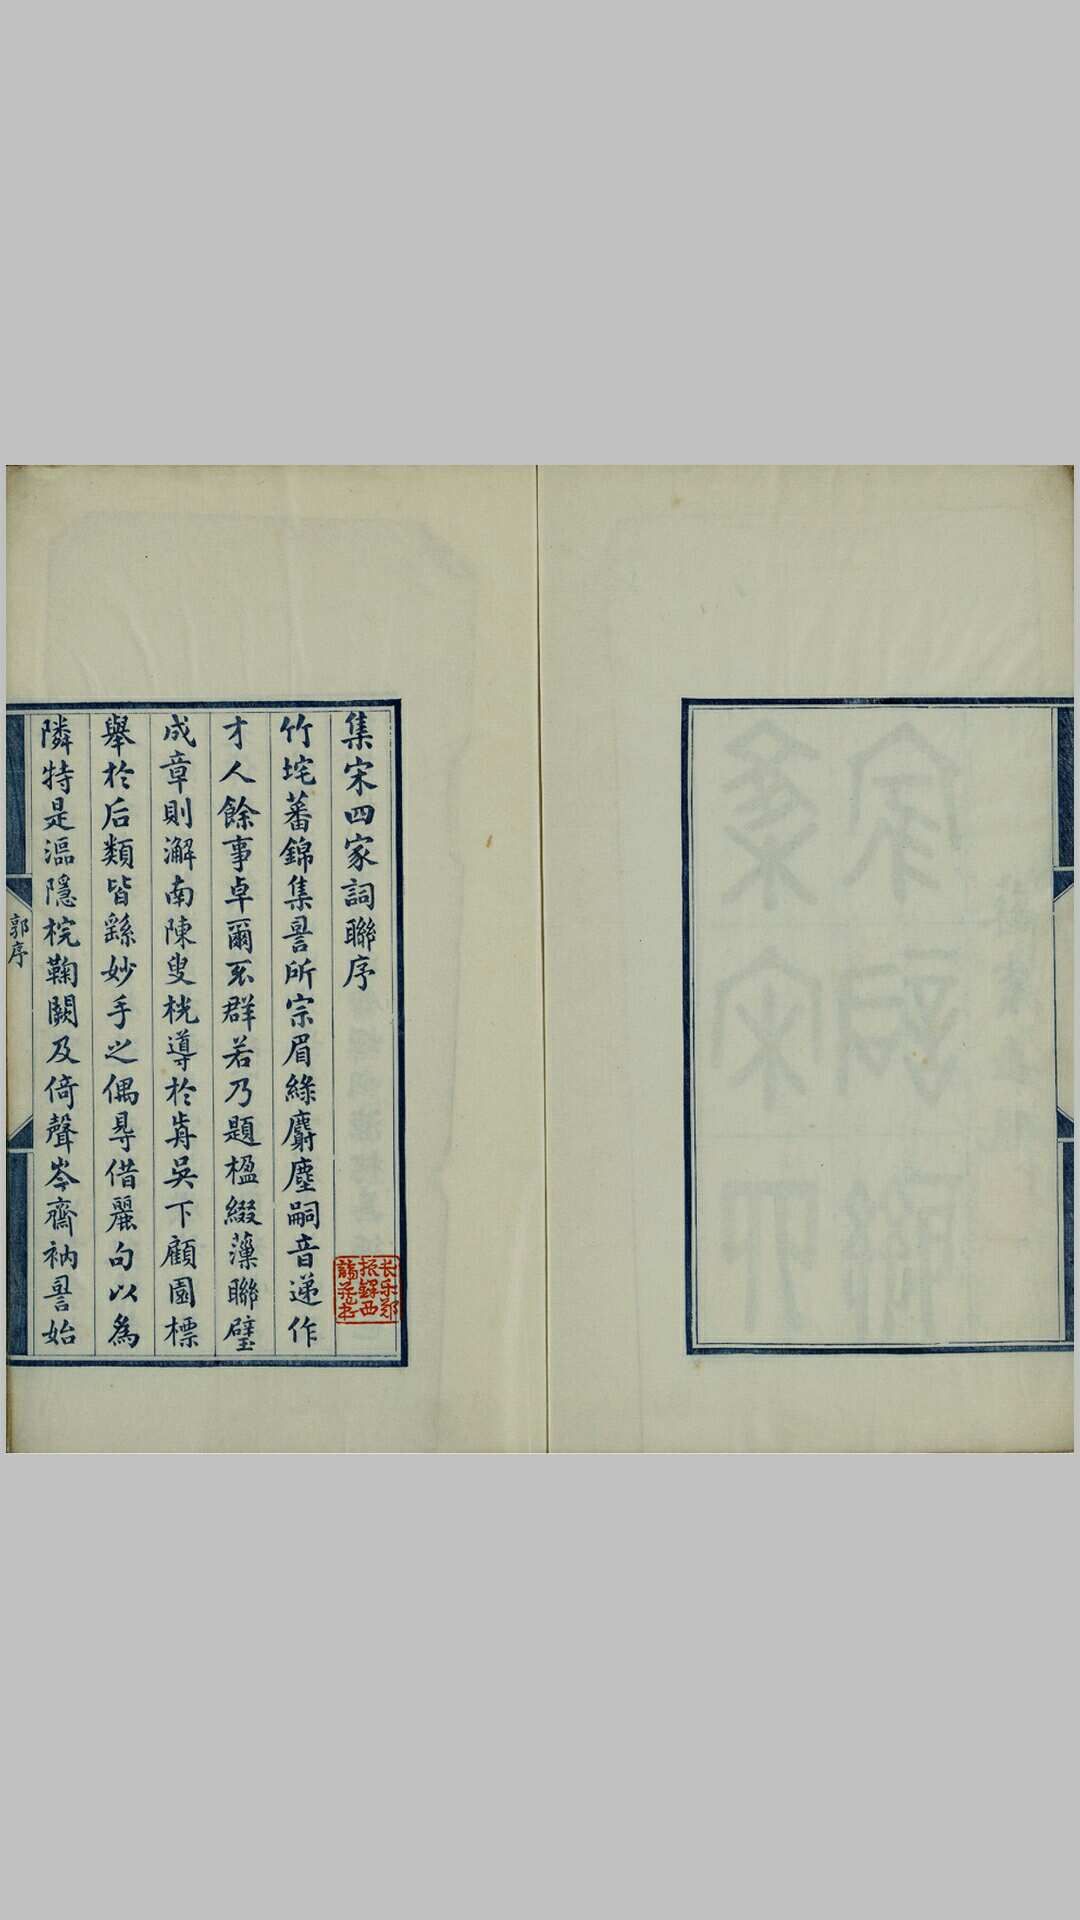 集宋四家詞聯序
竹垞蕃錦集詈所宗眉綠麝塵嗣音遞作
才人餘事卓爾不群若乃題楹綴藻聯璧
成章則澥南陳叟桄導於歬吳下顧園標
舉於后類皆繇妙手之偶㝵借麗句以為
隣特是漚隱梡鞠闕及倚聲岑齋衲詈始
郭序
长乐郑
振鐸西
諦藏书